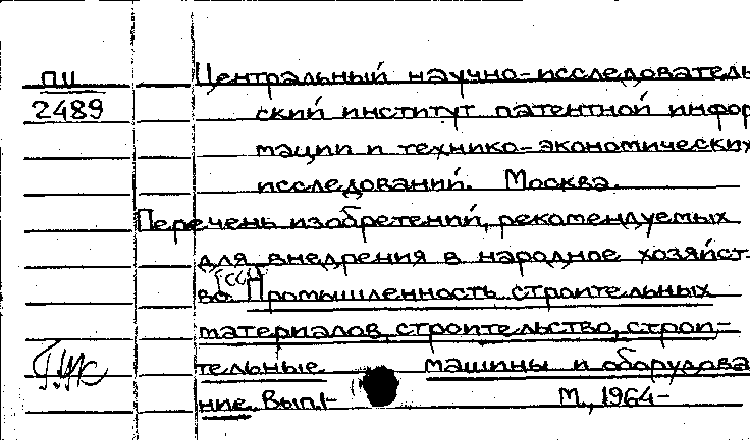 ПII Центральный научно-исследователь
2489 ский институт патентной инфор
мации и технико-экономических
исследований. Москва.
Перечень изобретений, рекомендуемых
для внедрения в народное хозяйст-
во [СССР] Промышленность строительных
материалов, строительство, строи-
тельные машины и оборудова
ние. Вып.1- М., 1964-